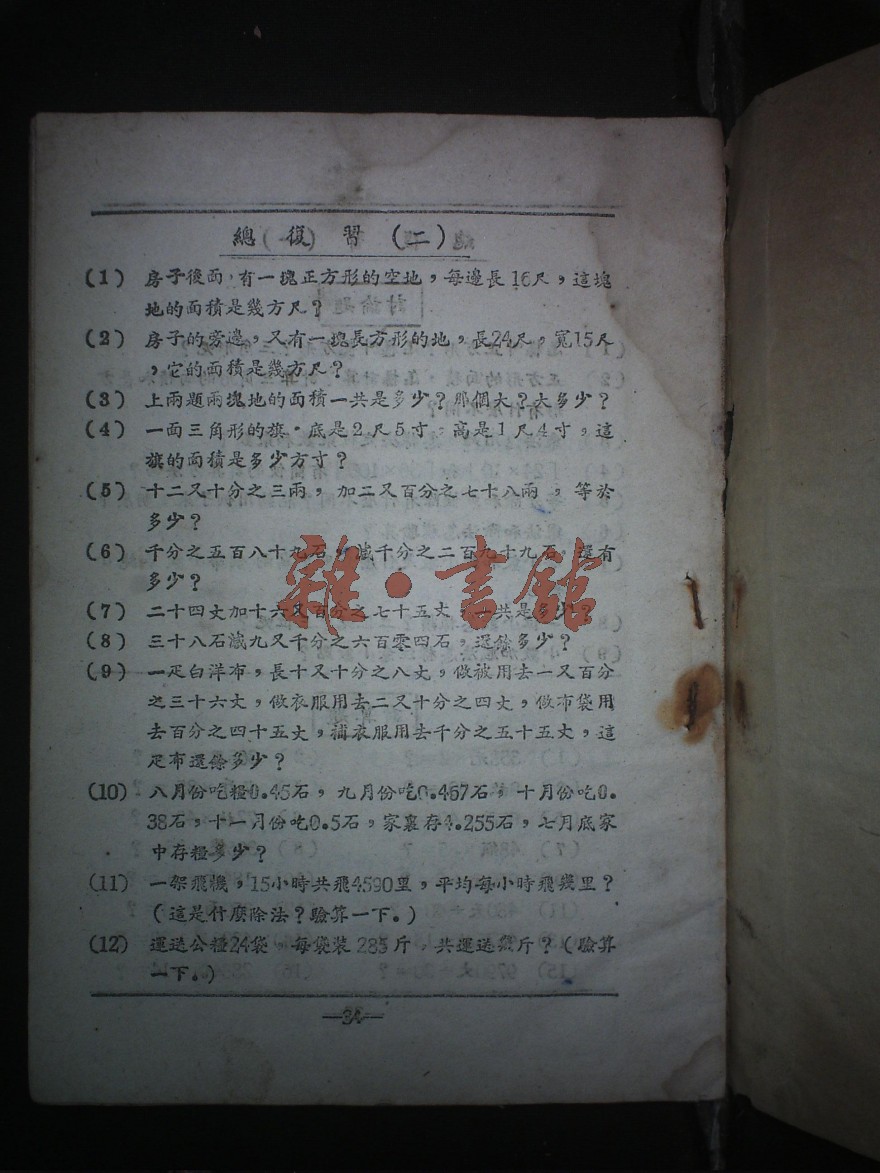 總復習(二)
(1) 房子後面,有一塊正方形的空地,每邊長16尺,這塊
地的面積是幾方尺?
(2) 房子的旁邊,又有一塊長方形的地,長24尺,寬15尺
,它的面積是幾方尺?
(3) 上兩題兩塊地的面積一共是多少?那個大?大多少?
(4) 一面三角形的旗,底是2尺5寸,高是1尺4寸,這
旗的面積是多少方寸?
(5) 十二又十分之三兩,加二又百分之七十八兩,等於
多少?
(6) 千分之五百八十九石,減千分之二百九十九石,還有
多少?
(7) 二十四丈加十六又百分之七十五丈,一共是多少?
(8) 三十八石減九又千分之六百零四石,還餘多少?
(9) 一疋白洋布,長十又十分之八丈,做被用去一又百分
之三十六丈,做衣服用去二又十分之四丈,做布袋用
去百分之四十五丈,補衣服用去千分之五十五丈,這
疋布還餘多少?
(10) 八月份吃糧0.45石,九月份吃0.467石,十月份吃0.
38石,十一月份吃0.5石,家裏存4.255石,七月底家
中存糧多少?
(11) 一架飛機,15小時共飛4590里,平均每小時飛幾里?
(這是什麼除法?驗算一下。)
(12) 運送公糧24袋,每袋裝285斤,共運送幾斤?(驗算
一下。)
雜·書館